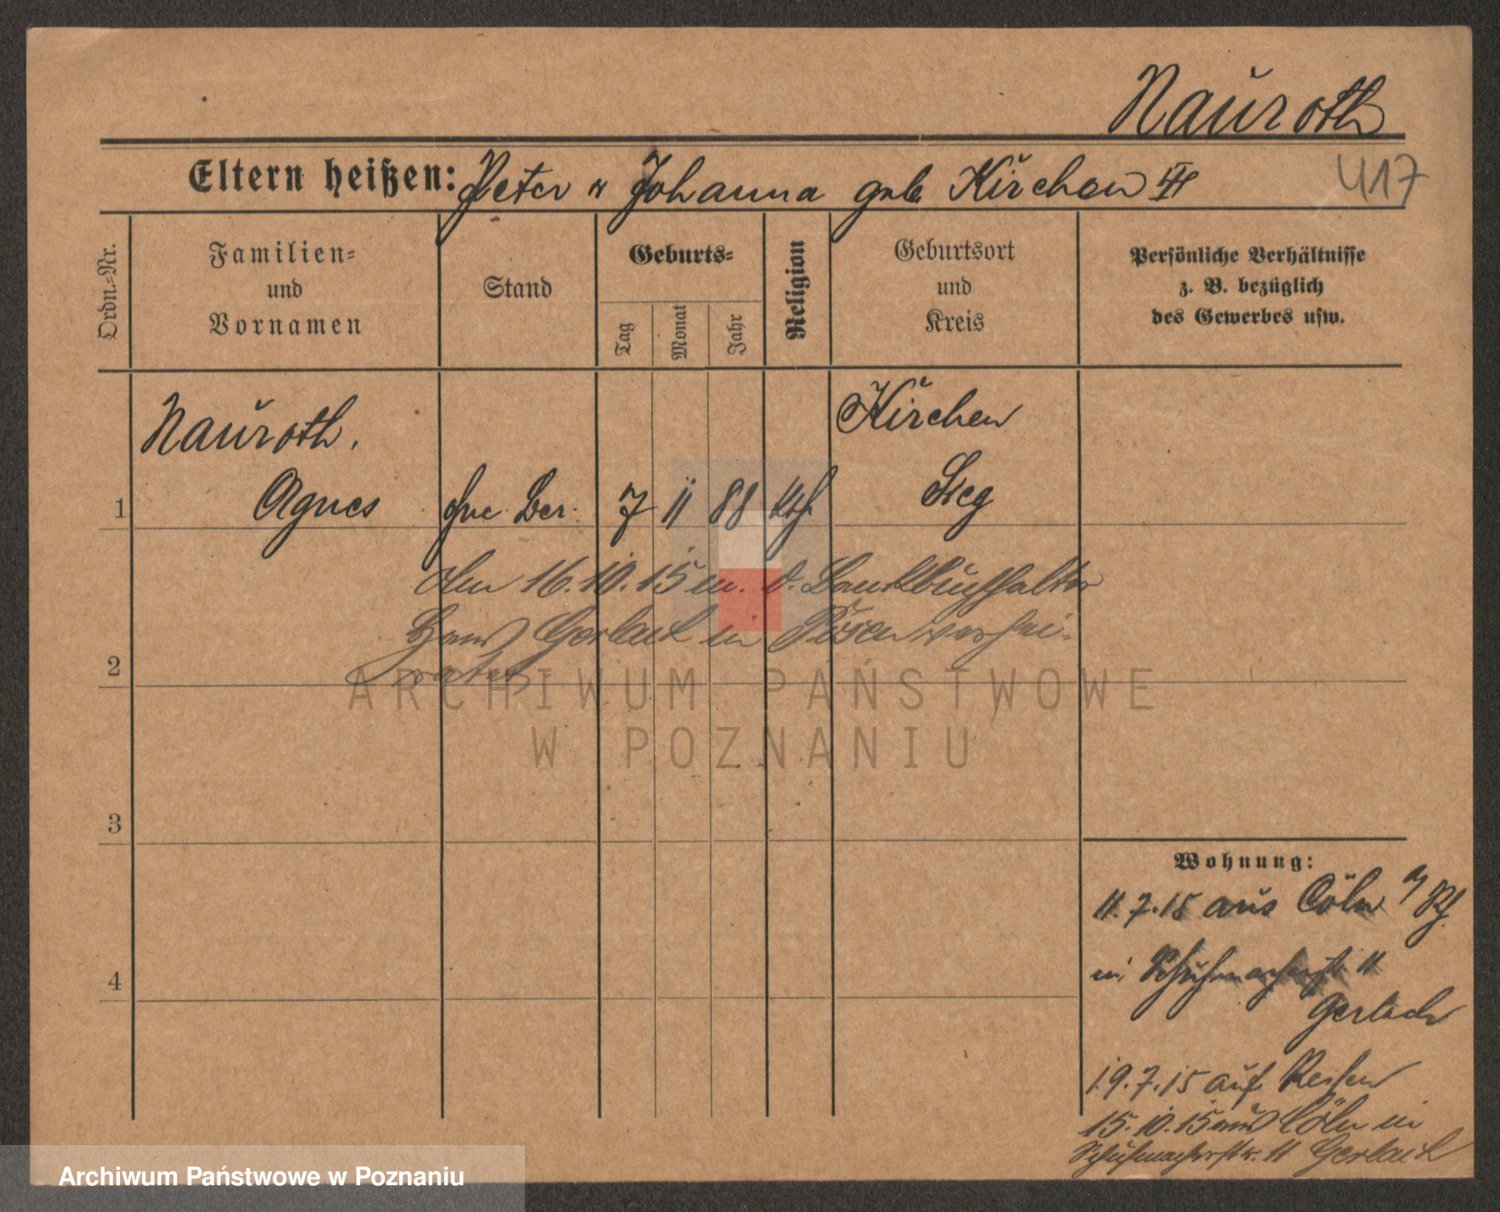 Nauroth
417
Eltern heißen: Peter u Johanna geb Kirchen
Ordn.-Nr.
Familien-
und
Vornamen
Stand
Geburts-
Tag
Monat
Jahr
Religion
Geburtsort
und
Kreis
Persönliche Verhältnisse
z. B. bezüglich
des Gewerbes usw.
Nauroth,
Agnes
1
ohne Ber.
7
11
88
kth.
Kirchen
Sieg
Am 16.10.15 m. d. Bankbuchhalter
Hans Gerlach in Posen verhei-
ratet
2
3
4
Wohnung:
11.7.15 aus Cöln a/Rh.
in Schuhmacherstr 11
Gerlach
19.7.15 auf Reisen
15.10.15 aus Cöln in
Schuhmacherstr. 11 Gerlach
ARCHIWUM PAŃSTWOWE
W POZNANIU
Archiwum Państwowe w Poznaniu